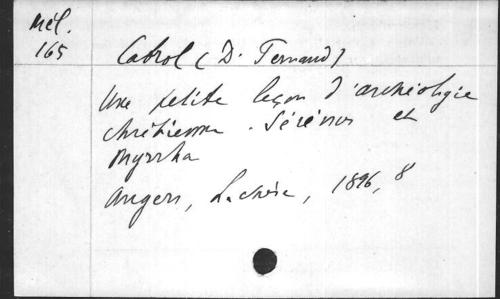 Mél.
165
Cabrol (D. Fernand)
Une petite leçon d'archéologie
chrétienne. Sérénus et
Myrrha
Angers, Lachèse, 1896, 8